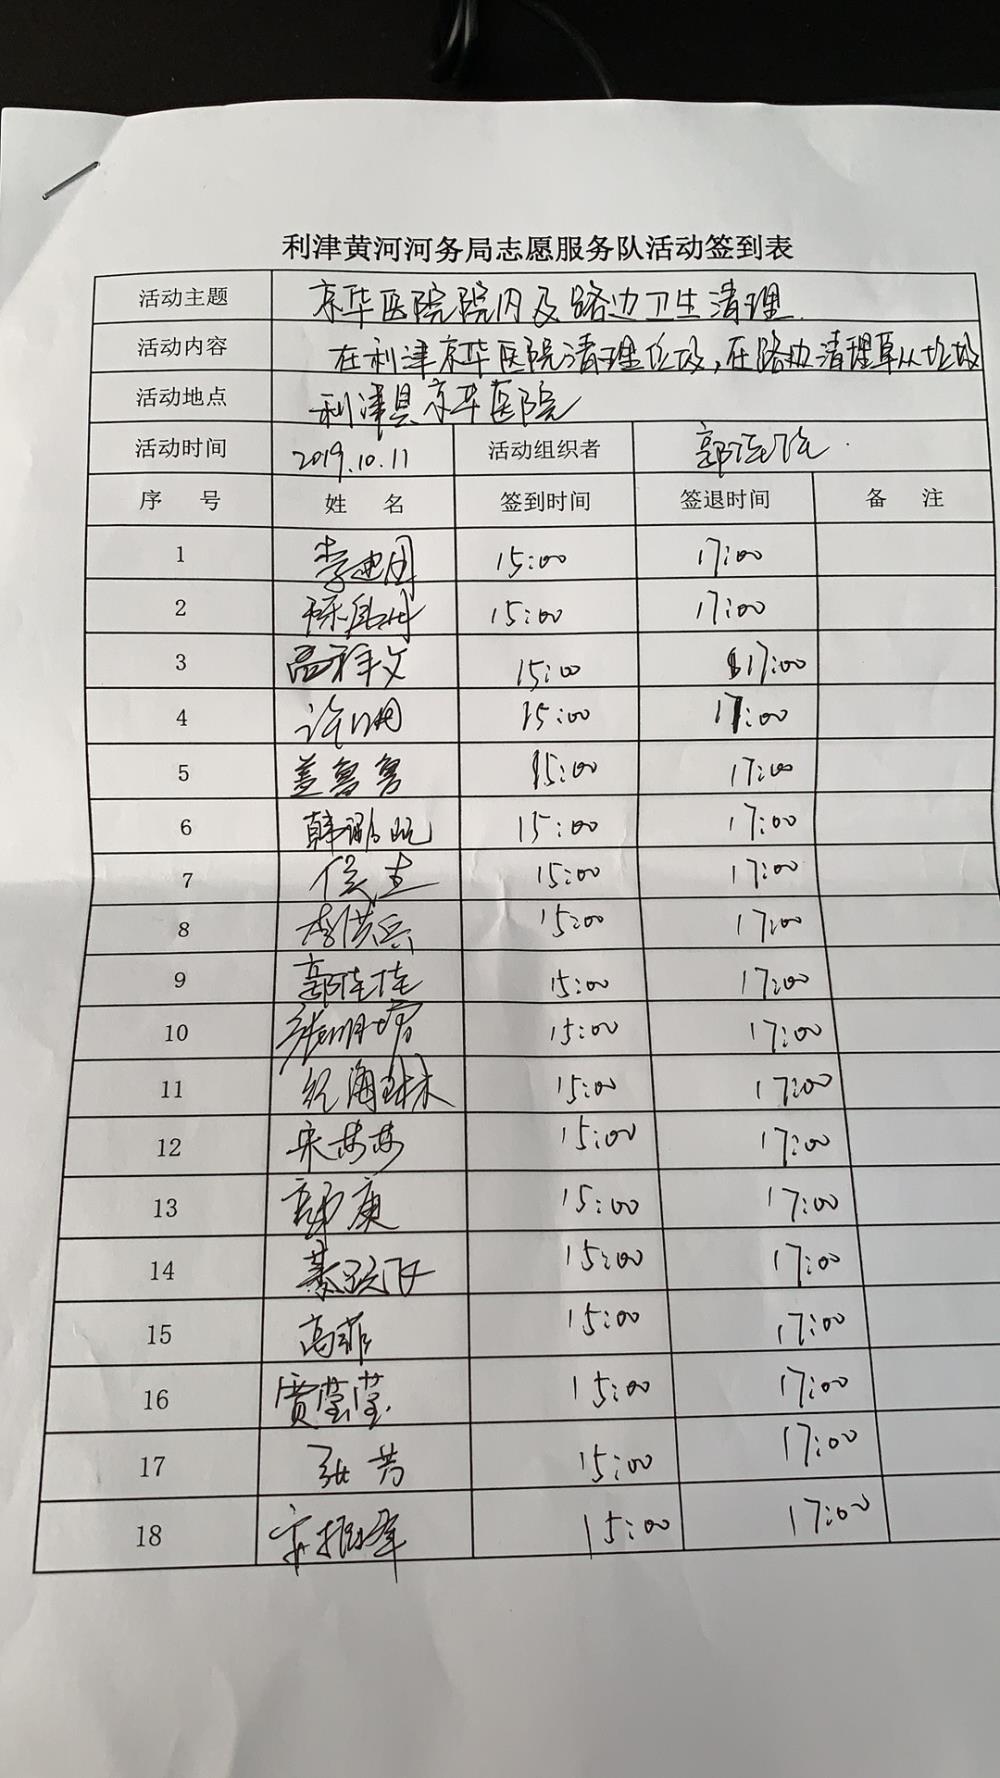 利津黄河河务局志愿服务队活动签到表
活动主题 京华医院院内及路边卫生清理.
活动内容 在利津京华医院清理垃圾,在路边清理草丛垃圾
活动地点 利津县京华医院
活动时间 2019.10.11 活动组织者 郭佳佳
序 号 姓 名 签到时间 签退时间 备 注
1 李建国 15:00 17:00
2 15:00 17:00
3 15:00 17:00
4 15:00 17:00
5 盖鲁鲁 15:00 17:00
6 韩 15:00 17:00
7 15:00 17:00
8 李洪兵 15:00 17:00
9 郭佳佳 15:00 17:00
10 张明 15:00 17:00
11 纪海琳 15:00 17:00
12 宋莎莎 15:00 17:00
13 15:00 17:00
14 15:00 17:00
15 高菲 15:00 17:00
16 贾莹莹 15:00 17:00
17 张芳 15:00 17:00
18 15:00 17:00